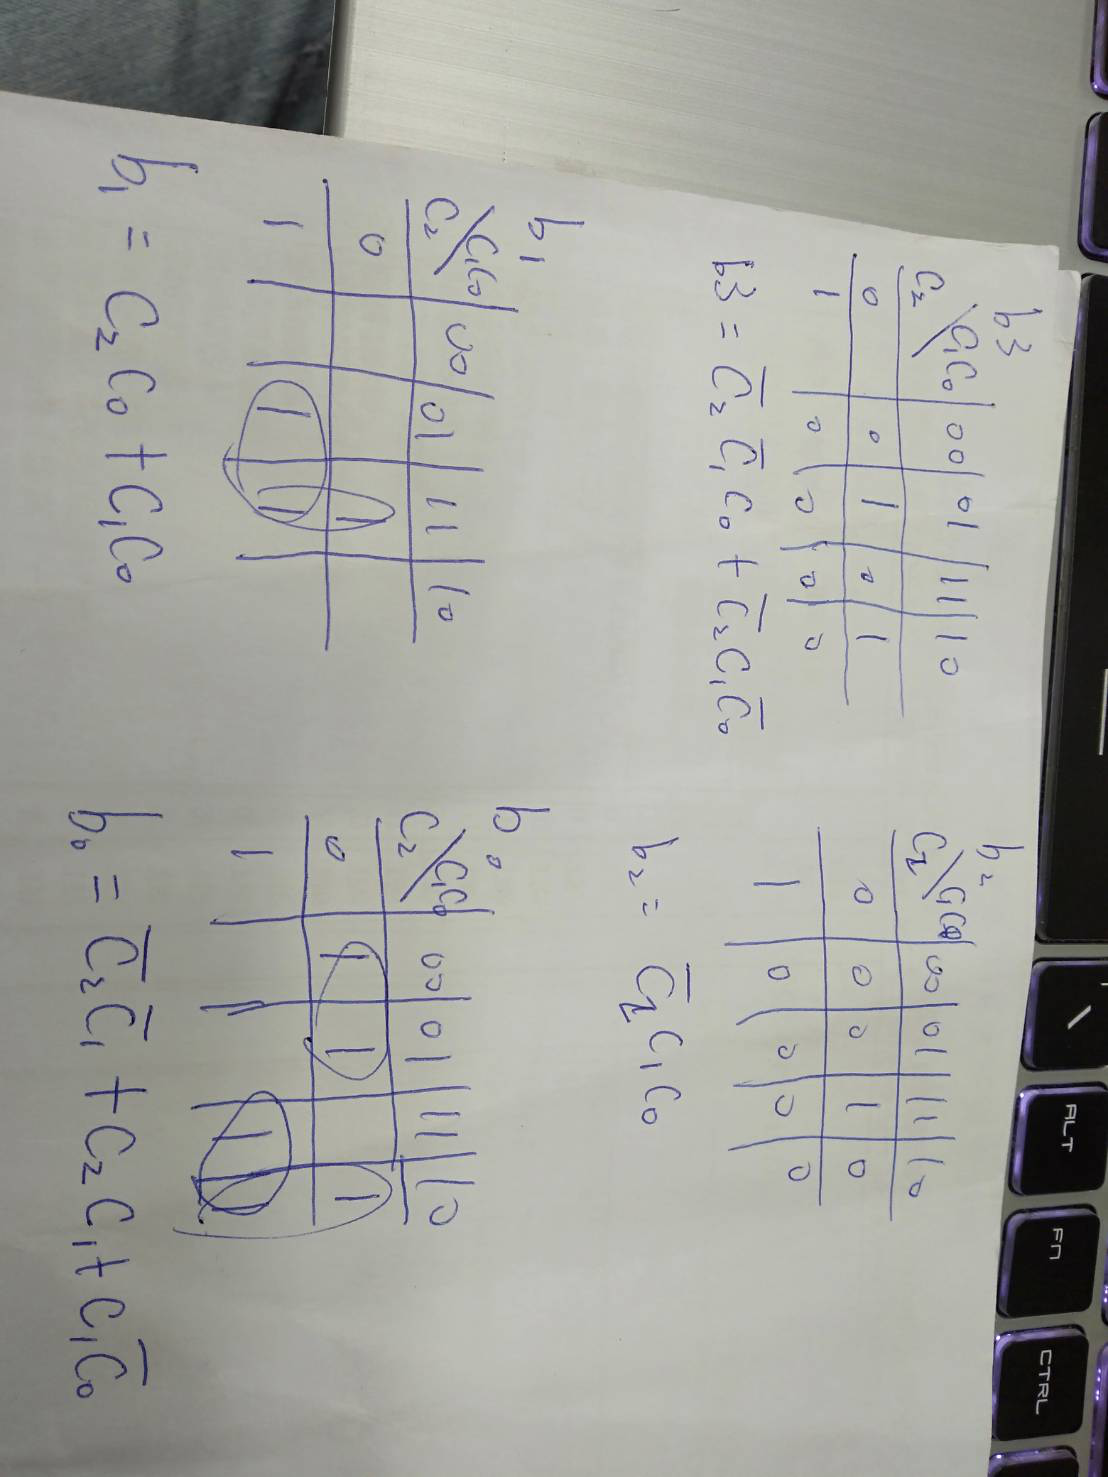 b3
C₂/C₁C₀ 00 01 11 10
0 0 1 0 1
1 0 0 0 0
b3 = C̅₂ C̅₁ C₀ + C̅₂ C₁ C̅₀
b₂
C₂/C₁C₀ 00 01 11 10
0 0 0 1 0
1 0 0 0 0
b₂ = C̅₂ C₁ C₀
b₁
C₂/C₁C₀ 00 01 11 10
0 1
1 1 1
b₁ = C₂ C₀ + C₁C₀
b₀
C₂/C₁C₀ 00 01 11 10
0 1 1 1
1 1 1
b₀ = C̅₂C̅₁ + C₂C₁ + C₁C̅₀
\
ALT
FN
CTRL